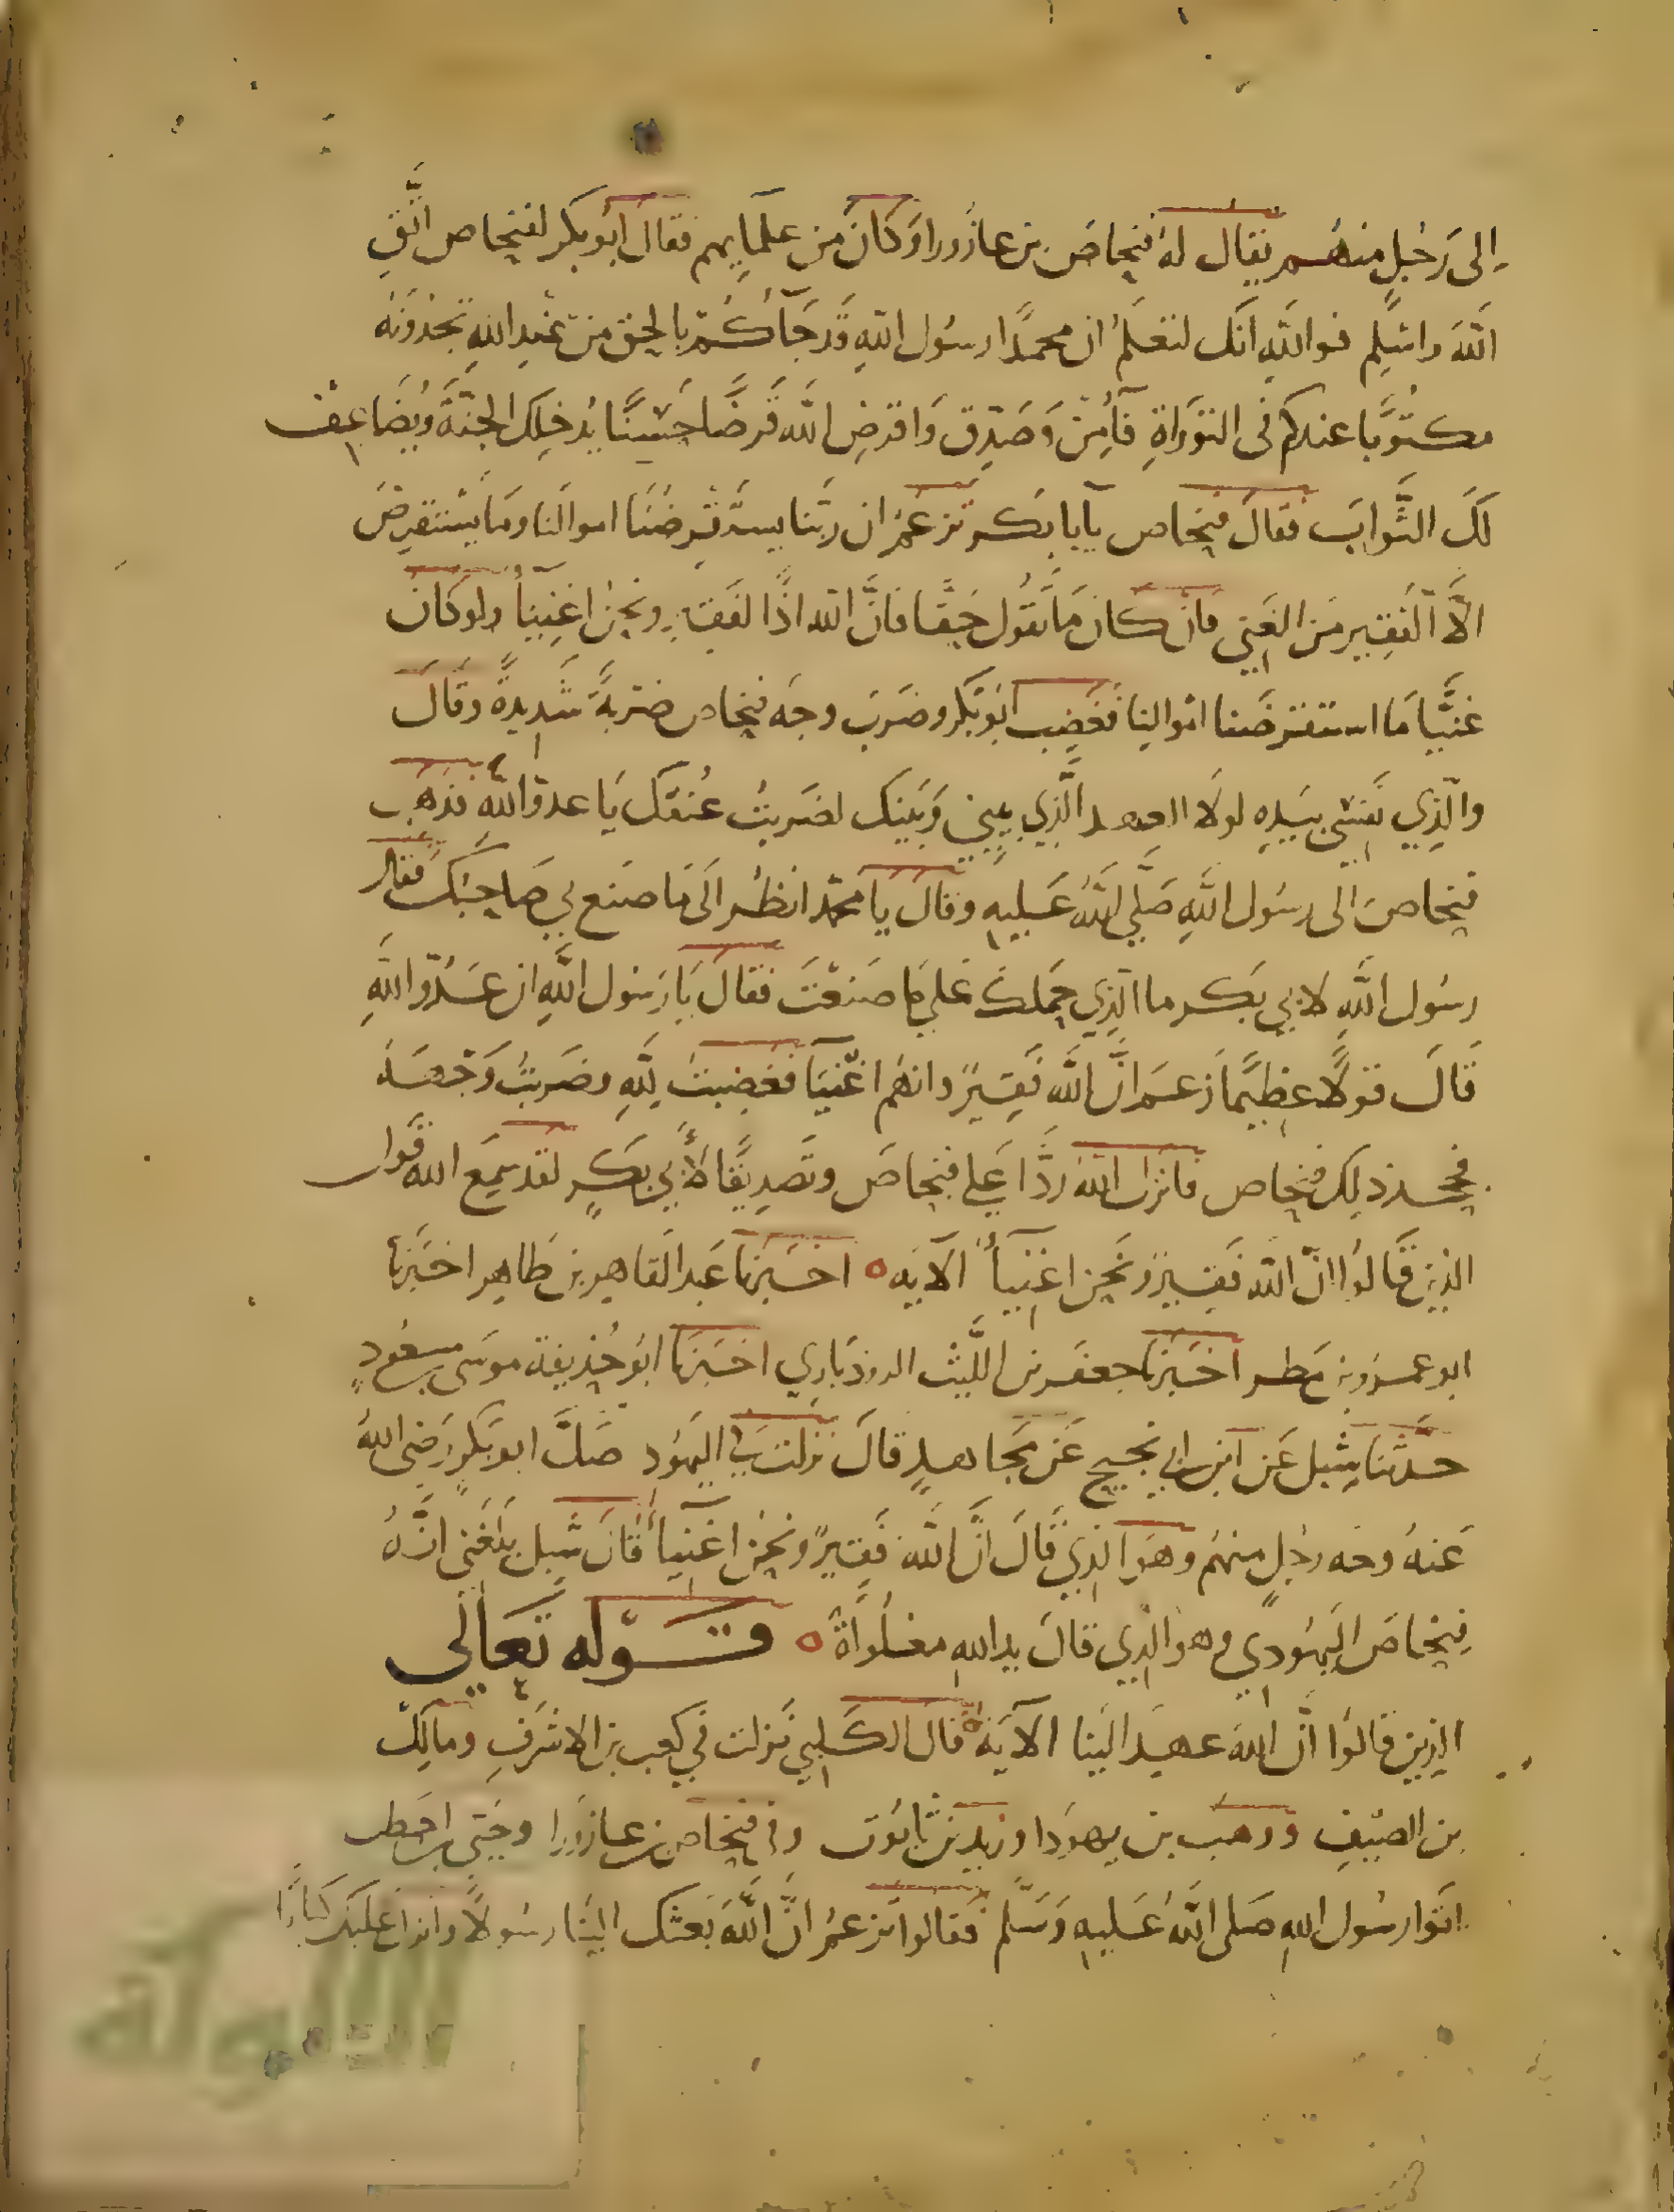 إلى رجل منهم يقال له فنحاص بن عازورا وكان من علمايهم فقال أبو بكر لفنحاص اتق
الله واسلم فوالله انك لتعلم ان محمدا رسول الله قد جآكم بالحق من عند الله تجدونه
مكتوبا عندكم في التوراة فآمن وصدق واقرض الله قرضا حسنا يدخلك الجنة ويضاعف
لك الثواب فقال فنحاص يآبا بكر تزعم ان ربنا يستقرضنا اموالنا وما يستقرض
الا الفقير من الغني فان كان ما تقول حقا فان الله اذا لفقير ونحن اغنيآ ولو كان
غنيا ما استقرضنا اموالنا فغضب ابو بكر وضرب وجه فنحاص ضربة شديدة وقال
والذي نفسي بيده لولا العهد الذي بيني وبينك لضربت عنقك يا عدو الله فذهب
فنحاص الى رسول الله صلى الله عليه وقال يا محمد انظر الى ما صنع بي صاحبك فقال
رسول الله لابي بكر ما الذي حملك على ما صنعت فقال يا رسول الله ان عدو الله
قال قولا عظيما زعم ان الله فقير وانهم اغنيآ فغضبت لله وضربت وجهه
فجحد ذلك فنحاص فانزل الله ردا على فنحاص وتصديقا لأبي بكر لقد سمع الله قول
الذين قالوا ان الله فقير ونحن اغنيآ الآية ه اخبرنا عبد القاهر بن طاهر اخبرنا
ابو عمرو بن مطر اخبرنا جعفر بن الليث الروذباري اخبرنا ابو حذيفة موسى بن مسعود
حدثنا شبل عن ابن ابي نجيح عن مجاهد قال نزلت في اليهود صك ابو بكر رضي الله
عنه وجه رجل منهم وهو الذي قال ان الله فقير ونحن اغنيآ قال شبل بلغني انه
فنحاص اليهودي وهو الذي قال يد الله مغلولة ه قوله تعالى
الذين قالوا ان الله عهد الينا الآية ه قال الكلبي نزلت في كعب بن الاشرف ومالك
بن الصيف ووهب بن يهودا وزيد بن تابوت وفي فنحاص بن عازورا وحيي بن اخطب
اتوا رسول الله صلى الله عليه وسلم فقالوا تزعم ان الله بعثك الينا رسولا وانزل عليك كتابا
الألوكة